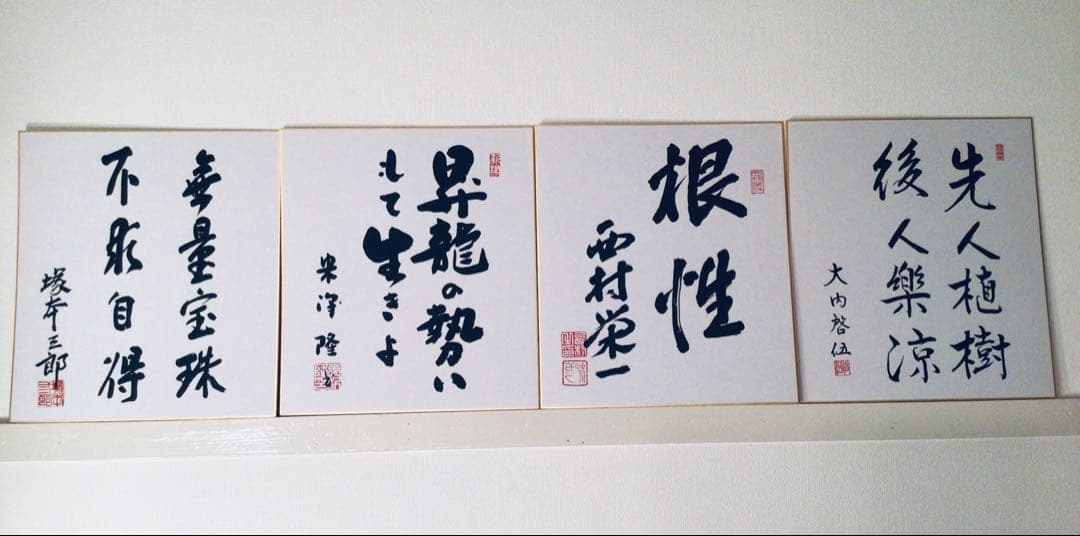 先人植樹
後人樂涼
大内啓伍
根性
西村栄一
昇龍の勢い
もて生きよ
米澤隆書
無量宝珠
不求自得
塚本三郎